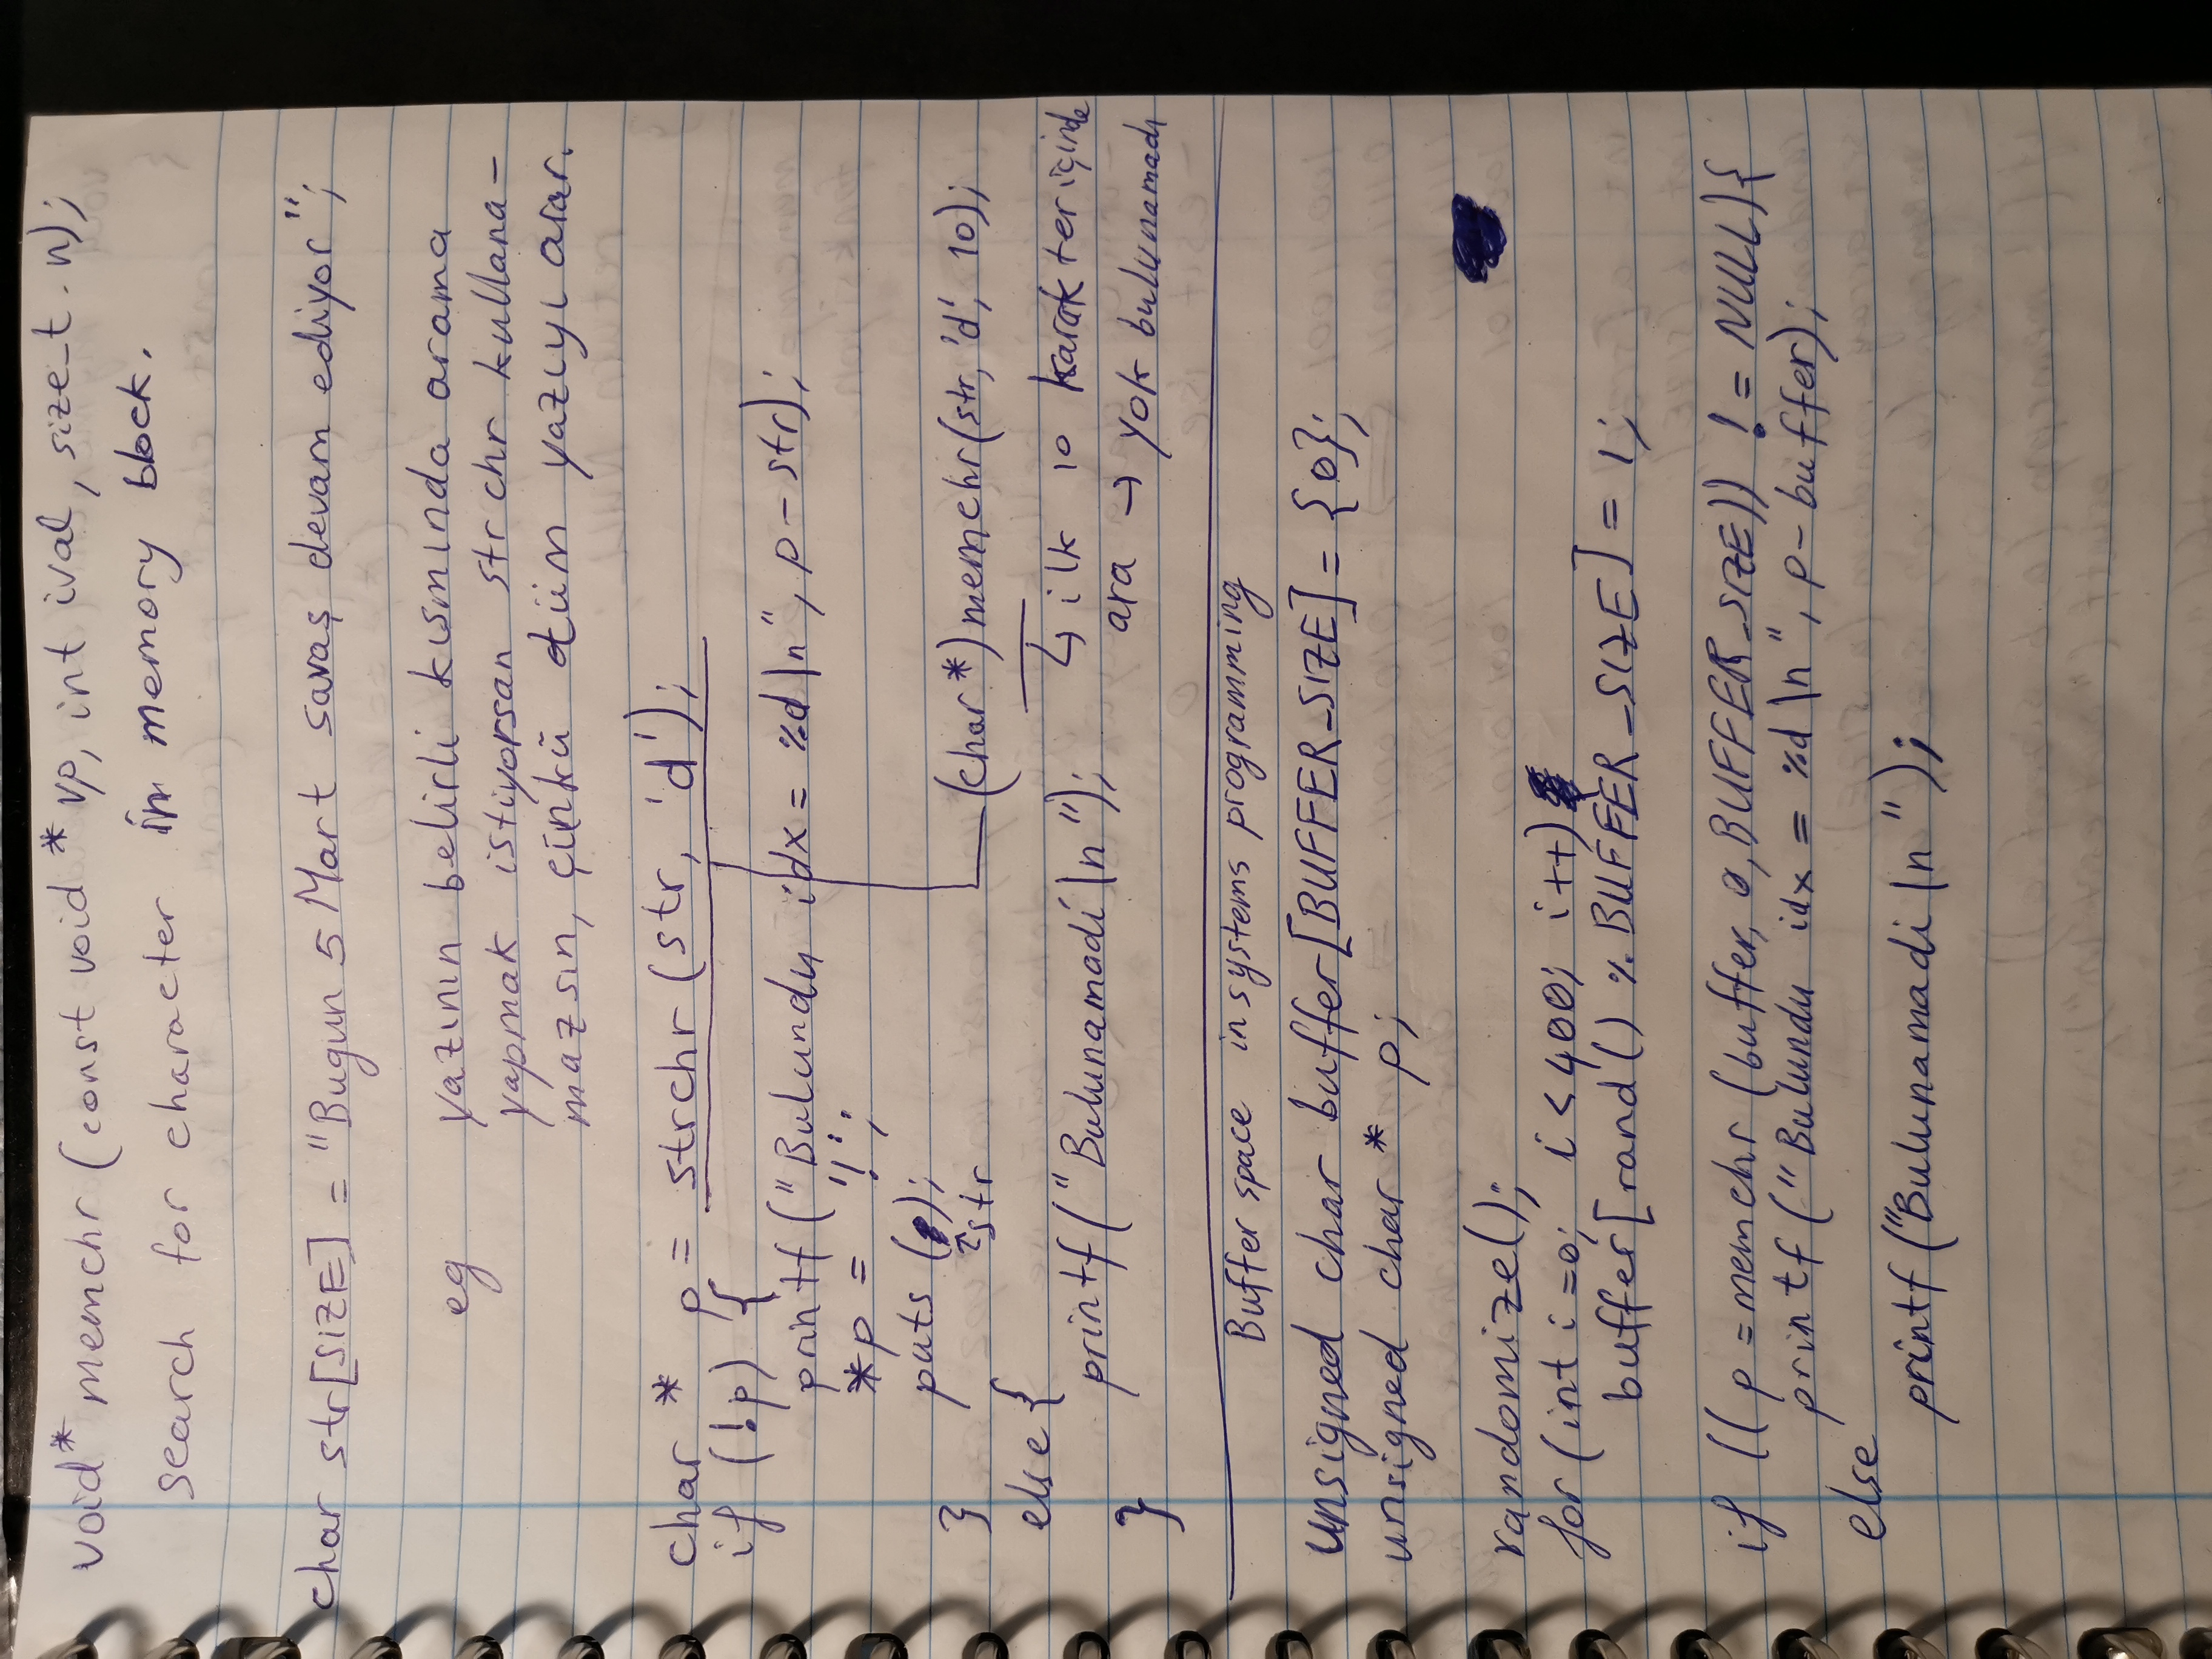 void* memchr (const void * vp, int ival, size_t n);
search for character in memory block.
char str[SIZE] = "Bugun 5 Mart savaş devam ediyor";
eg yazının belirli kısmında arama
yapmak istiyorsan strchr kullana-
mazsın, çünkü tüm yazıyı arar.
char * p = strchr (str, 'd');
if (!p) {
printf ("Bulundu idx = %d \n", p - str);
*p = '!';
puts (p);
↑str
}
(char *) memchr (str, 'd', 10);
else {
↳ ilk 10 karakter içinde
printf ("Bulunamadi \n");
ara → yok bulunamadı
}
Buffer space in systems programming
unsigned char buffer[BUFFER_SIZE] = {0};
unsigned char * p;
randomize();
for (int i = 0; i < 400; i++)
buffer[rand () % BUFFER_SIZE] = 1;
if ((p = memchr (buffer, 0, BUFFER_SIZE)) != NULL) {
printf ("Bulundu idx = %d \n", p - buffer);
else
printf ("Bulunamadi \n");